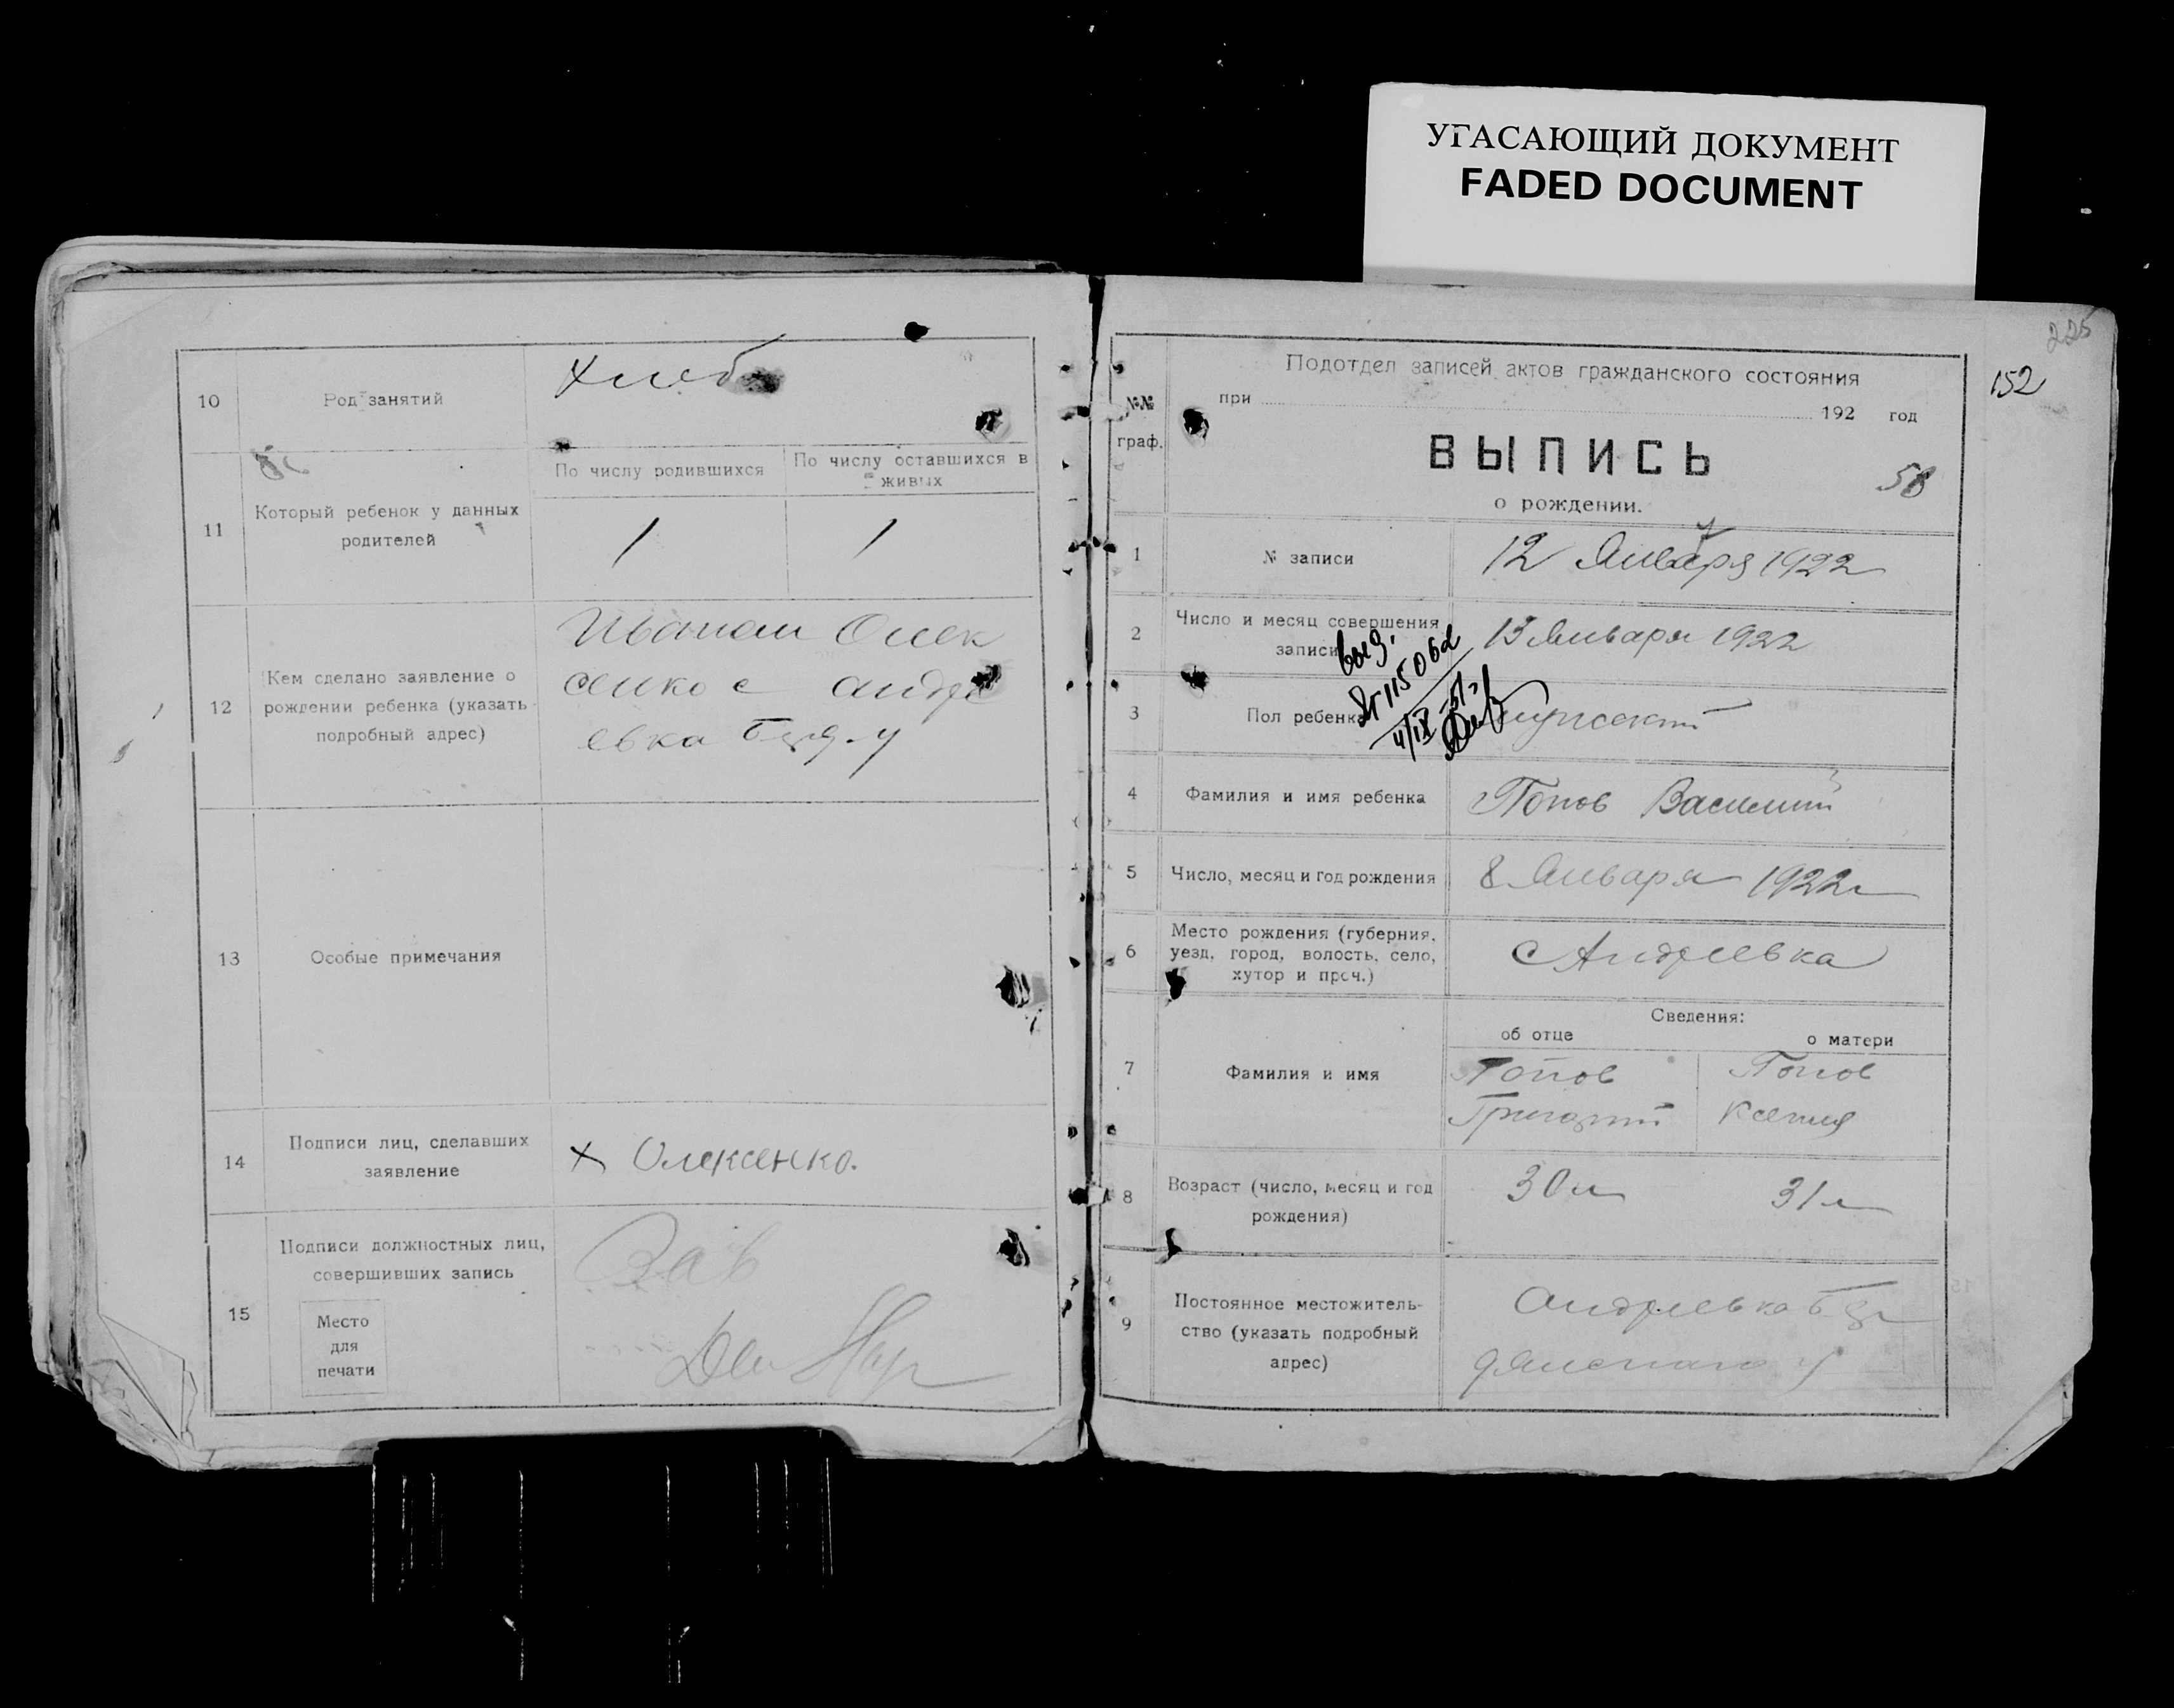 УГАСАЮЩИЙ ДОКУМЕНТ
FADED DOCUMENT
10
Род занятий
Хлеб
11
Который ребенок у данных
родителей
По числу родившихся
По числу оставшихся в
живых
1
1
12
Кем сделано заявление о
рождении ребенка (указать
подробный адрес)
Иваном Олек
сенко с андре
евка
13
Особые примечания
14
Подписи лиц, сделавших
заявление
х Олексенко.
15
Подписи должностных лиц,
совершивших запись
Место
для
печати
Зав
225
152
№№
граф.
Подотдел записей актов гражданского состояния
при 192 год
ВЫПИСЬ
58
о рождении.
1
№ записи
12 Января 1922
2
Число и месяц совершения
записи
13 Января 1922
выд.
4/IX-51
3
Пол ребенка
мужский
4
Фамилия и имя ребенка
Попов Василий
5
Число, месяц и год рождения
8 Января 1922г
6
Место рождения (губерния,
уезд, город, волость, село,
хутор и проч.)
с Андреевка
Сведения:
об отце
о матери
7
Фамилия и имя
Попов
Григорий
Попов
Ксения
8
Возраст (число, месяц и год
рождения)
30л
31л
9
Постоянное местожитель-
ство (указать подробный
адрес)
Андреевка Бер
дянского у